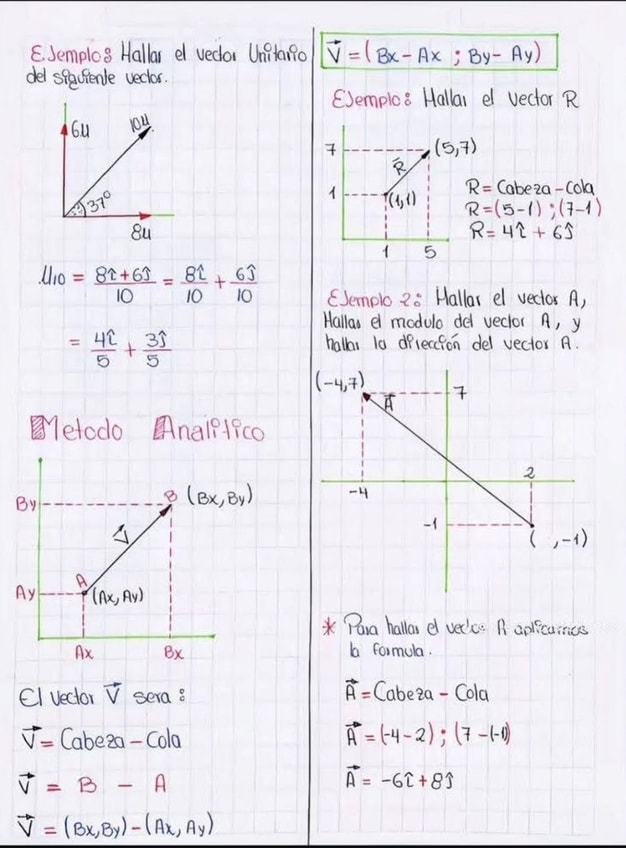 Ejemplo: Hallar el vector Unitario
del siguiente vector.
6u
10u
37°
8u
μ10 = 8î+6ĵ/10 = 8î/10 + 6ĵ/10
= 4î/5 + 3ĵ/5
Metodo Analitico
By
B (Bx, By)
V⃗
A
Ay
(Ax, Ay)
Ax
Bx
El vector V⃗ sera:
V⃗ = Cabeza - Cola
V⃗ = B - A
V⃗ = (Bx, By) - (Ax, Ay)
V⃗ = (Bx - Ax ; By - Ay)
Ejemplo: Hallar el vector R
7
(5,7)
R⃗
1
(1,1)
1
5
R = Cabeza - Cola
R = (5-1) ; (7-1)
R = 4î + 6ĵ
Ejemplo 2: Hallar el vector A,
Hallar el modulo del vector A, y
hallar la dirección del vector A.
(-4,7)
A⃗
7
2
-4
-1
( ,-1)
* Para hallar el vector A aplicamos
la formula.
A⃗ = Cabeza - Cola
A⃗ = (-4-2) ; (7-(-1)
A⃗ = -6î + 8ĵ